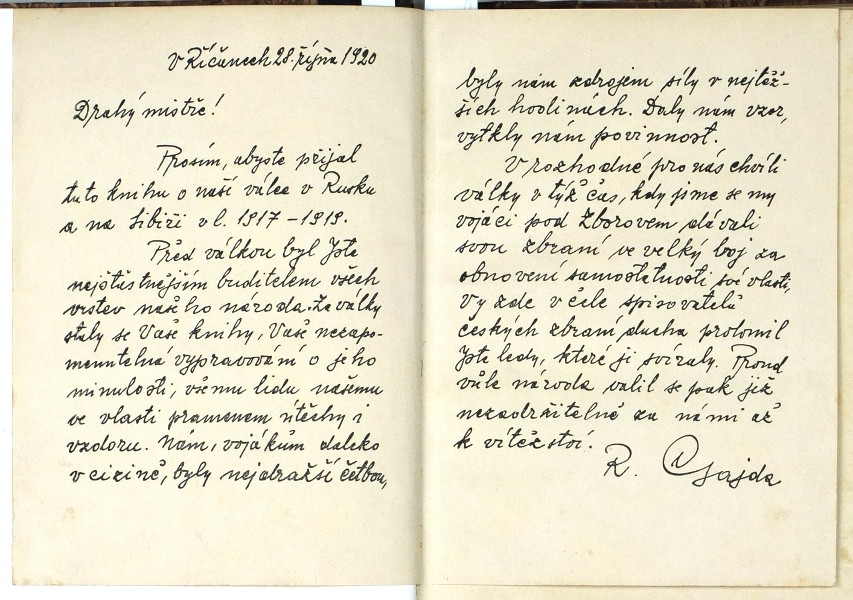 V Říčanech 28. října 1920
Drahý mistře!
Prosím, abyste přijal
tuto knihu o naší válce v Rusku
a na Sibiři v l. 1917 - 1919.
Před válkou byl Jste
nejšťastnějším buditelem všech
vrstev našeho národa. Za války
staly se Vaše knihy, Vaše nezapo-
menutelná vypravování o jeho
minulosti, všemu lidu našemu
ve vlasti pramenem útěchy i
vzdoru. Nám, vojákům daleko
v cizině, byly nejdražší četbou,
byly nám zdrojem síly v nejtěž-
ších hodinách. Daly nám vzor,
vytkly nám povinnost.
V rozhodné pro nás chvíli
války v týž čas, kdy jsme se my
vojáci pod Zborovem dávali
svou zbraní ve velký boj za
obnovení samostatnosti své vlasti,
Vy zde v čele spisovatelů
českých zbraní ducha prolomil
Jste ledy, které ji svíraly. Proud
vůle národa valil se pak již
nezadržitelně za námi až
k vítězství.
R. Gajda